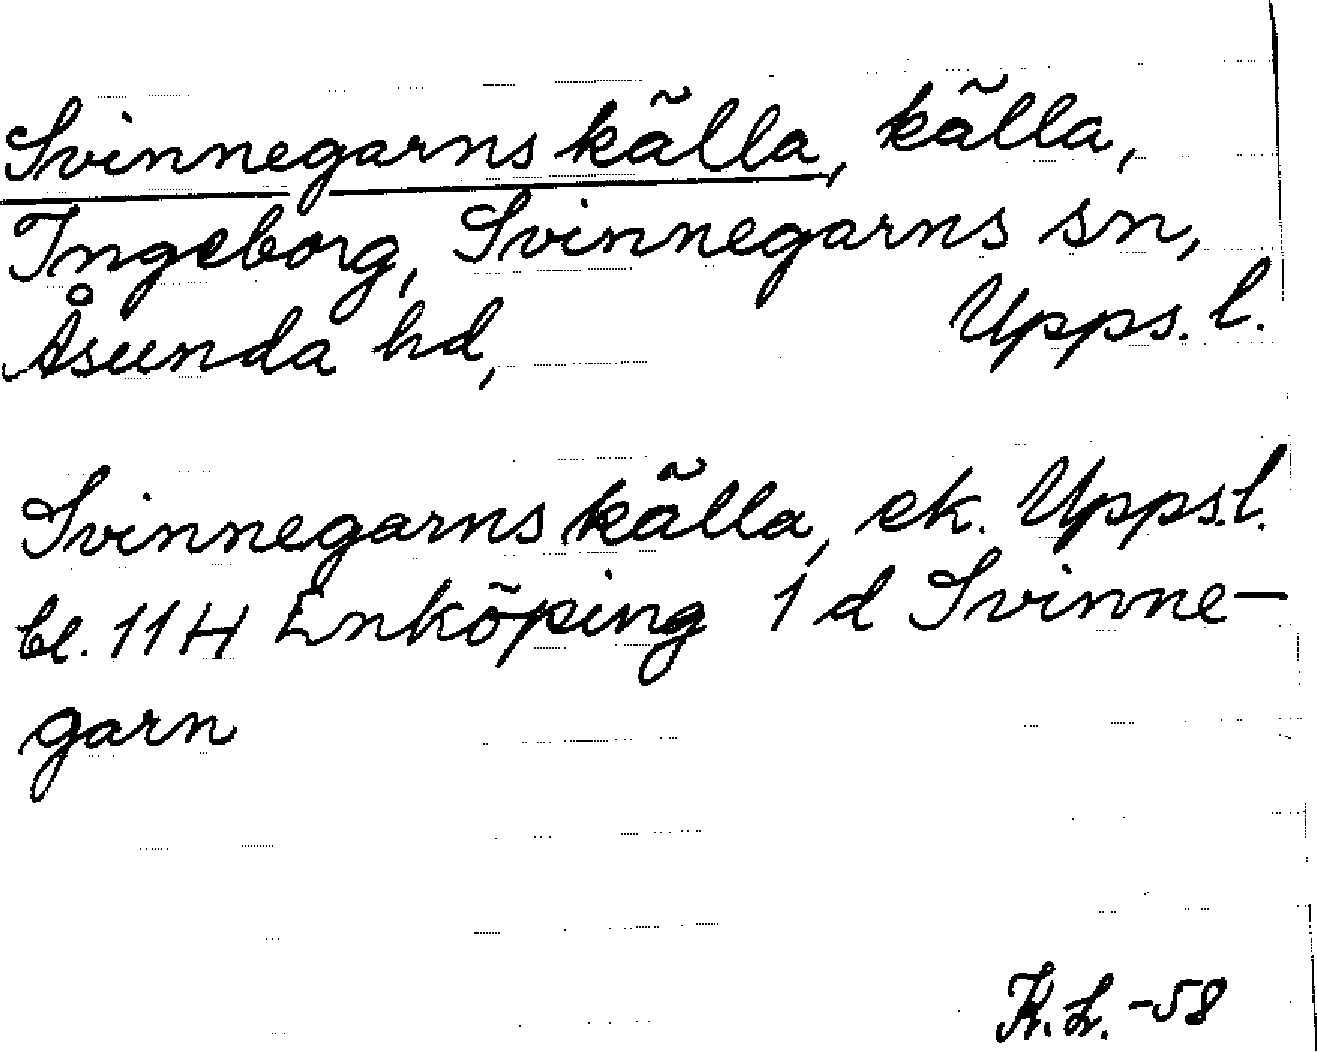 Svinnegarns källa, källa,
Ingeborg, Svinnegarns sn,
Åsunda hd, Upps. l.
Svinnegarns källa, ek. Upps.l.
bl. 11H Enköping 1 d Svinne-
garn
K.L. -58